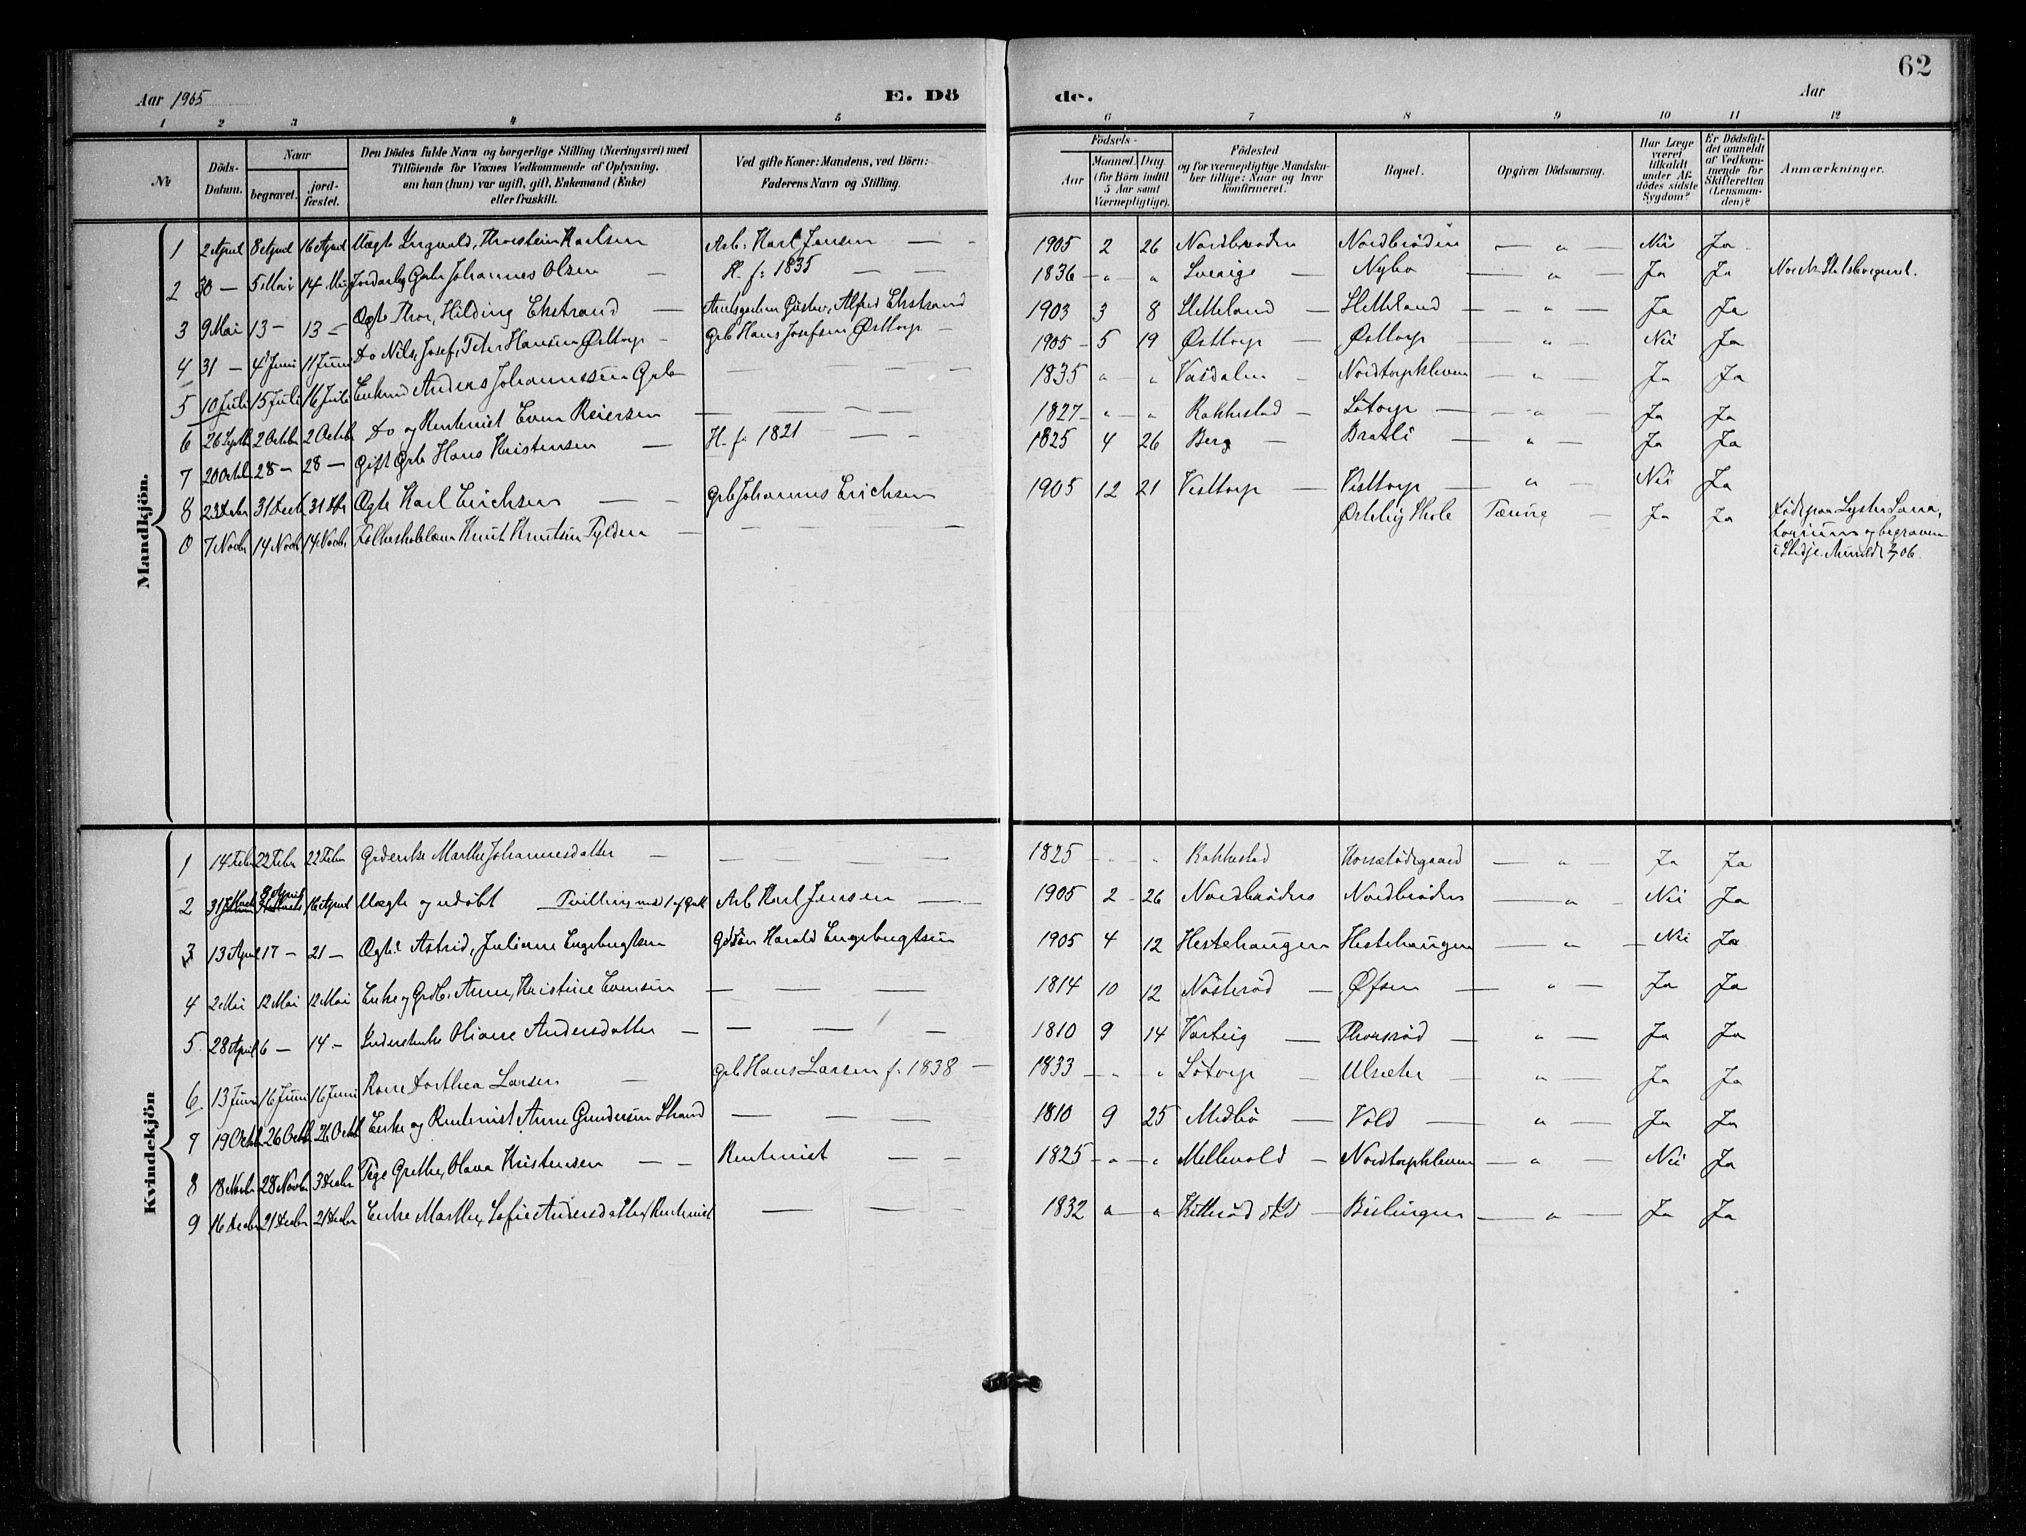 62
Aar 1905 E. Dö de. Aar
1 2 3 4 5 6 7 8 9 10 11 12
№
Döds-Datum.
Naar
begravet.
jord-fæstet.
Den Dödes fulde Navn og borgerlige Stilling (Næringsvei) med
Tilföiende for Voxnes Vedkommende af Oplysning,
om han (hun) var ugift, gift, Enkemand (Enke)
eller fraskilt.
Ved gifte Koner: Mandens, ved Börn:
Faderens Navn og Stilling.
Födsels-
Aar
Maaned. Dag.
(for Börn indtil
5 Aar samt
Værnepligtige).
Födested
og for værnepligtige Mandska-
ber tillige: Naar og hvor
konfirmeret.
Bopæl.
Opgiven Dödsaarsag.
Har Læge
været
tilkaldt
under Af-
dödes sidste
Sygdom?
Er Dödsfal-
det anmeldt
af Vedkom-
mende for
Skifteretten
(Lensman-
den)?
Anmærkninger.
Mandkjön.
1 2 April 8 April 16 April Uægte Ingvald, Thorstein Karlsen Arb. Karl Jensen — — 1905 2 26 Nordbrøden Nordbrøden — " — Nei Ja
2 30 — 5 Mai 14 Mai Grb. Johannes Olsen — H. f. 1835 — — 1836 - " " Sverige — Nybo — " — Ja Ja Norsk Statsborger.
3 9 Mai 13 — 13 — Ægte Thor, Hilding Ekstrand — Gustav, Alfred Ekstrand 1903 3 8 Sletteland — Sletteland — " — Ja Ja
4 31 — 4 Juni 11 Juni Do Nils, Josef, Peter Hansen Østtorp — Grb Hans Josefsen Østtorp — 1905 - 5 19 Østtorp — Østtorp — " — Nei Ja
5 10 Juli 15 Juli 16 Juli Enkem Anders Johannessen Grb — — — 1835 " " Vasdalen — Nordtorpkleven — " — Ja Ja
6 26 Septb 2 Octbr 2 Octbr Do og Rentenist Even Reiersen — — — 1827 - " " Rakkestad — Løtorp — " — Ja Ja
7 20 Octb 28 — 28 — Gift Grb Hans Kristensen — H. f. 1821 — — 1825 4 26 Berg — Bratli — " — Ja Ja
8 23 Decbr 31 Decb 31 Dbr Ægte Karl Erichsen — — Grb Johannes Erichsen 1905 12 21 Visttorp — Visttorp — " — Nei Ja
0 7 Novbr 14 Novb 14 Novbr Folkeskolelærer Knut Knutsen Fylden — — — — Østeby Skole Tæring — Ja Ja Døde paa Lyster Sana-
torium og begraven
i Stedje 2/7 06.
Kvindekjön
1 14 Febr 22 Febr 22 Febr Grdenke Marthe Johannesdatter — — — — 1825 - - " Rakkestad Korsetødegaard — " — Ja Ja
2 31 Marts 8 April 16 April Uægte og udøbt Tvilling med 1 af Guttk Arb Karl Jensen — — 1905 2 - 26 Nordbrøden Nordbrøden — " — Nei Ja
3 13 April 17 — 21 — Ægte Astrid, Juliane Engebregtsen Grdsøn Harald Engebregtsen 1905 4 12 Hestehaugen Hestehaugen — " — Nei Ja
4 2 Mai 12 Mai 12 Mai Enke og Grdb. Anne, Kristine Evensen — — — 1814 10 12 Nøsterød — Øfsen — " — Ja Ja
5 28 April 6 — 14 — Inderstenke Oliane Andersdatter — — — — 1810 9 14 Varteig — Thorsrød — " — Ja Ja
6 13 Juni 16 Juni 16 Juni Kone Dorthea Larsen — Grb Hans Larsen f. 1838 — 1833 - - " Løtorp — Ulsæter — " — Ja Ja
7 19 Octb 26 Octb 26 Octb Enke og Rentenist Anne Gundersen Strand — — — 1810 9 25 Medbø — Vold — " — Ja Ja
8 18 Novbr 28 Novbr 3 Decbr Pige Grethe, Olava Kristensen — — Rentenist — — 1825 - " - " Mellevold — Nordtorpkleven — " — Nei Ja
9 16 Decbr 21 Decbr 21 Decbr Enke Marthe, Sofie Andersdatter, Rentenist — — — 1832 " - " Kitterød — Bislingen — " — Ja Ja